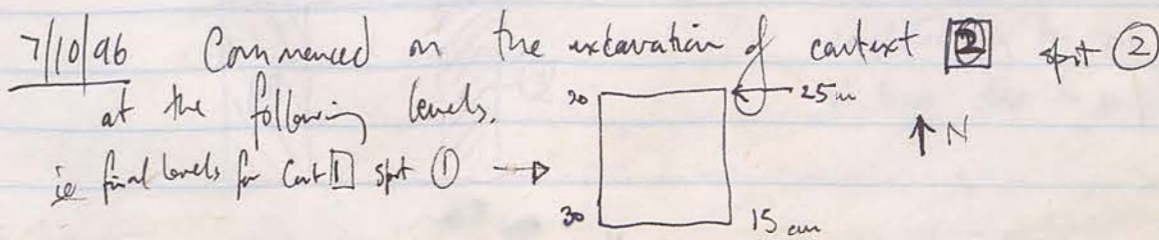 7/10/96 Commenced on the excavation of context 2 spit 2
at the following levels.
ie final levels for Cont 1 spit 1
20 25cm
N
30 15cm